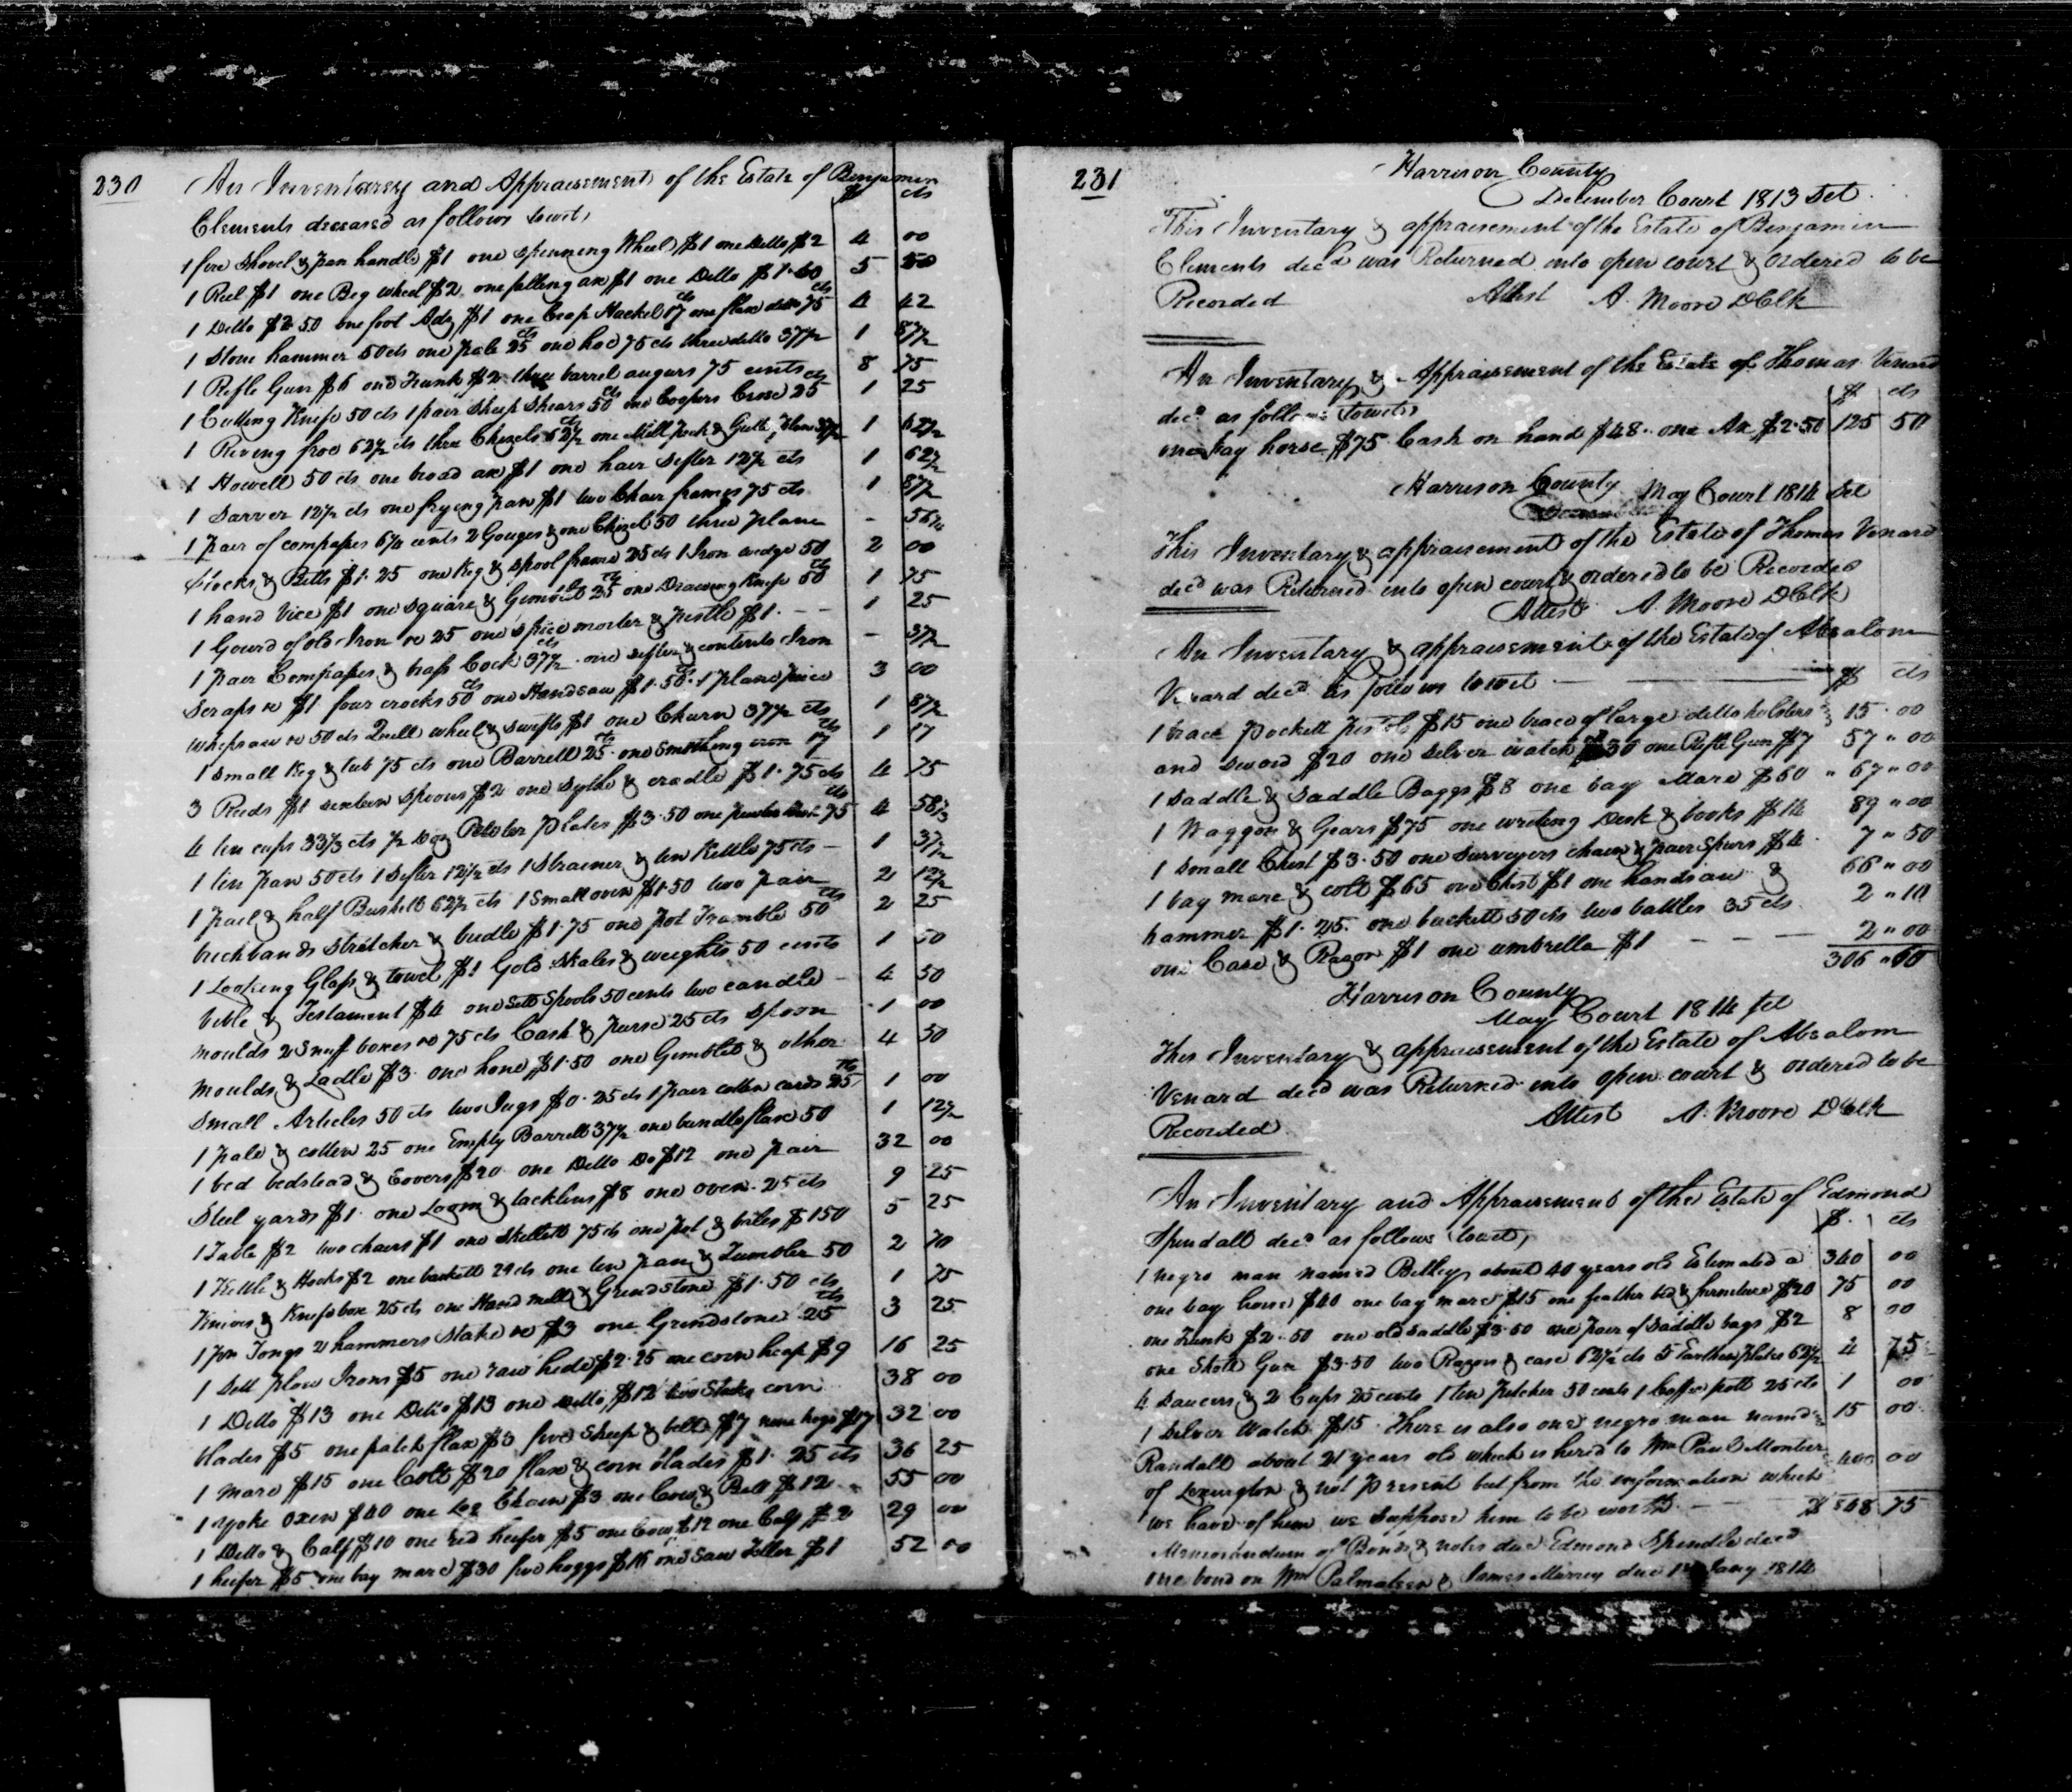 230
An Inventorey and Appraisement of the Estate of Benjamin
$ cts
Clements deceased as follows towit,
1 fire Shovel & pan handle $1 one Spinning Wheel $1 one Ditto $2 4 00
1 Reel $1 one Big wheel $2 one falling ax $1 one Ditto $1.50 5 50
1 Ditto $2 50 one foot Adz $1 one Heap Hackel 17 cts one flax ditto 75 cts 4 42
1 Stone hammer 50 cts one pale 25 cts one hoe 75 cts three ditto 37½ 1 87½
1 Rifle Gun $6 one Trunk $2 three barrel augurs 75 cents 8 75
1 Cutting Knife 50 cts 1 pair Sheep Shears 50 cts one Coopers Crose 25 cts 1 25
1 Riving froe 62½ cts three Chizels 62½ cts one Mill Peck & Gutt plane 37½ 1 62½
1 Howell 50 cts one broad ax $1 one hair Sifter 12½ cts 1 62½
1 Sarver 12½ cts one frying pan $1 two Chair frames 75 cts 1 87½
1 pair of compasses 6¼ cents 2 Gouges & one Chizel 50 three plane - 56¼
Stocks & Bitts $1.25 one Keg & Spool frame 25 cts 1 Iron wedge 50 2 00
1 hand Vice $1 one Square & Gimblet 25 cts one Drawing Knife 50 cts 1 75
1 Gourd of old Iron &c 25 one Spice morter & pestle $1. -- 1 25
1 pair Compasses & brass Cock 37½ cts one Sifter & contents Iron - 37½
Scraps &c $1 four crocks 50 cts one Handsaw $1.50 cts 1 plane piece 3 00
whipsaw &c 50 cts Quill wheel & Swifts $1 one Churn 37½ cts 1 87½
1 Small Keg & tub 75 cts one Barrell 25 cts one Smothing iron 17 cts 1 17
3 Reeds $1 sixteen Spoons $2 one Sythe & cradle $1.75 cts 4 75
4 tin cups 33⅓ cts ½ Doz Pewter plates $3.50 one pewter 75 cts 4 58⅓
1 tin pan 50 cts 1 Sifter 12½ cts 1 Strainer & tin Kettle 75 cts - 1 37½
1 pail & half Bushell 62½ cts 1 Small oven $1.50 two pair 2 12½
brichbands Stretcher & bridle $1.75 one pot Tramble 50 cts 2 25
1 Looking Glass & towel $1 Gold Skales & weights 50 cents 1 50
bible & Testament $4 one Sett Spools 50 cents two candle - 4 50
moulds 2 Snuff boxes &c 75 cts Cash & purse 25 cts Spoon 1 00
moulds & Ladle $3 one hone $1.50 one Gimblet & other 4 50
Small Articles 50 cts two Jugs $0.25 cts 1 pair cotten cards 25 cts 1 00
1 pale & cotten 25 one Empty Barrell 37½ one bundle flax 50 1 12½
1 bed bedstead & Covers $20 one Ditto Do $12 one pair 32 00
Steel yards $1. one Loom & tacklins $8 one oven 25 cts 9 25
1 Table $2 two chairs $1 one Skillett 75 cts one pot & bales $1 50 5 25
1 Kettle & Hooks $2 one buckett 29 cts one tin pan & Tumbler 50 2 70
Knives & Knifebox 25 cts one Hand mill & Grindstone $1.50 cts 1 75
1 pr Tongs 2 hammers Stake &c $3 one Grindstone 25 cts 3 25
1 Sett plow Irons $5 one raw hide $2.25 one corn heap $9 16 25
1 Ditto $13 one Ditto $13 one Ditto $12 two Stakes corn 38 00
blades $5 one patch flax $3 five Sheep & bell $7 nine hogs $17 32 00
1 mare $15 one Colt $20 flax & corn blades $1.25 cts 36 25
1 yoke oxen $40 one Log Chain $3 one Cow & Bell $12 55 00
1 Ditto & Calf $10 one red heifer $5 one Cow $12 one Calf $2 29 00
1 heifer $5 one bay mare $30 five hoggs $16 one Saw Filler $1 52 00
231
Harrison County
December Court 1813 Sct.
This Inventary & appraisement of the Estate of Benjamin
Clements decd was Returned into open court & ordered to be
Recorded Attest A. Moore DClk
An Inventary & Appraisement of the Estate of Thomas Venard
$ cts
decd as follows Towit,
one bay horse $75. Cash on hand $48.. one Ax $2.50 125 50
Harrison County May Court 1814 Sct
This Inventary & appraisement of the Estate of Thomas Venard
decd was Returned into open court & ordered to be Recorded
Attest A. Moore DClk
An Inventary & appraisement of the Estate of Absalom
Venard decd as follows towit $ cts
1 brace pockett pistols $15 one brace of large ditto holsters 15.00
and sword $20 one Silver watch $30 one Rifle Gun $7 57 " 00
1 Saddle & Saddle Baggs $8 one bay Mare $60 " 67 " 00
1 Waggon & Gears $75 one writing Desk & books $14 89 " 00
1 Small Chest $3.50 one Surveyers chain & pair Spurs $4 7 " 50
1 bay mare & colt $65 one Chest $1 one handsaw & 66 " 00
hammer $1.25. one buckett 50 cts two bottles 35 cts 2 " 10
one Case & Razon $1 one umbrella $1 --- 2 " 00
306 " 60
Harrison County
May Court 1814 Sct
This Inventary & appraisement of the Estate of Absalom
Venard decd was Returned into open court & ordered to be
Recorded. Attest A. Moore DClk
An Inventary and Appraisement of the Estate of Edmond
$. cts
Spendall decd as follows (towit),
1 negro man named Belley about 40 years old Estimated a 340 00
one bay horse $40 one bay mare $15 one feather bed & furniture $20 75 00
one Trunk $2.50 one old Saddle $3.50 one pair of Saddle bags $2 8 00
one Shott Gun $3.50 two Razons & case 62½ cts 5 Earthen plates 62½ 4 75
4 Saucers & 2 Cups 25 cents 1 tin pitcher 50 cents 1 Coffee pott 25 cts 1 00
1 Silver Watch $15. There is also one negro man named 15 00
Randall about 21 years old which is hired to Wm Paul Montier
of Lexington & not present but from the information which 400 00
we have of him we Suppose him to be worth --- $848 75
Memorandum of Bonds & notes due Edmond Spindle decd
one bond on Wm Palmateen & James Murrey due 1st Jany 1814